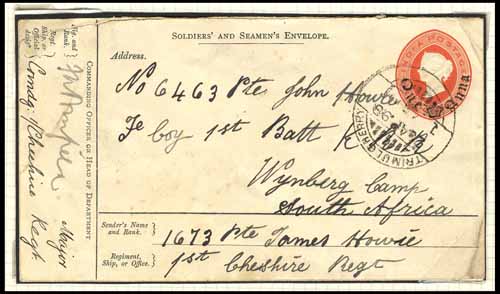 SOLDIERS' AND SEAMEN'S ENVELOPE.
Address.
No 6463 Pte John Howie
boy 1st Batt
Wynberg Camp
South Africa
Sender's Name and Rank.
1673 Pte James Howie
Regiment, Ship, or Office.
1st Cheshire Regt
COMMANDING OFFICER OR HEAD OF DEPARTMENT
Sig. and Rank.
Major
Regt. Ship, or Official desigt.
Comdg. 1/Cheshire Regt
POSTAGE
One Anna
TRIMULGHERRY